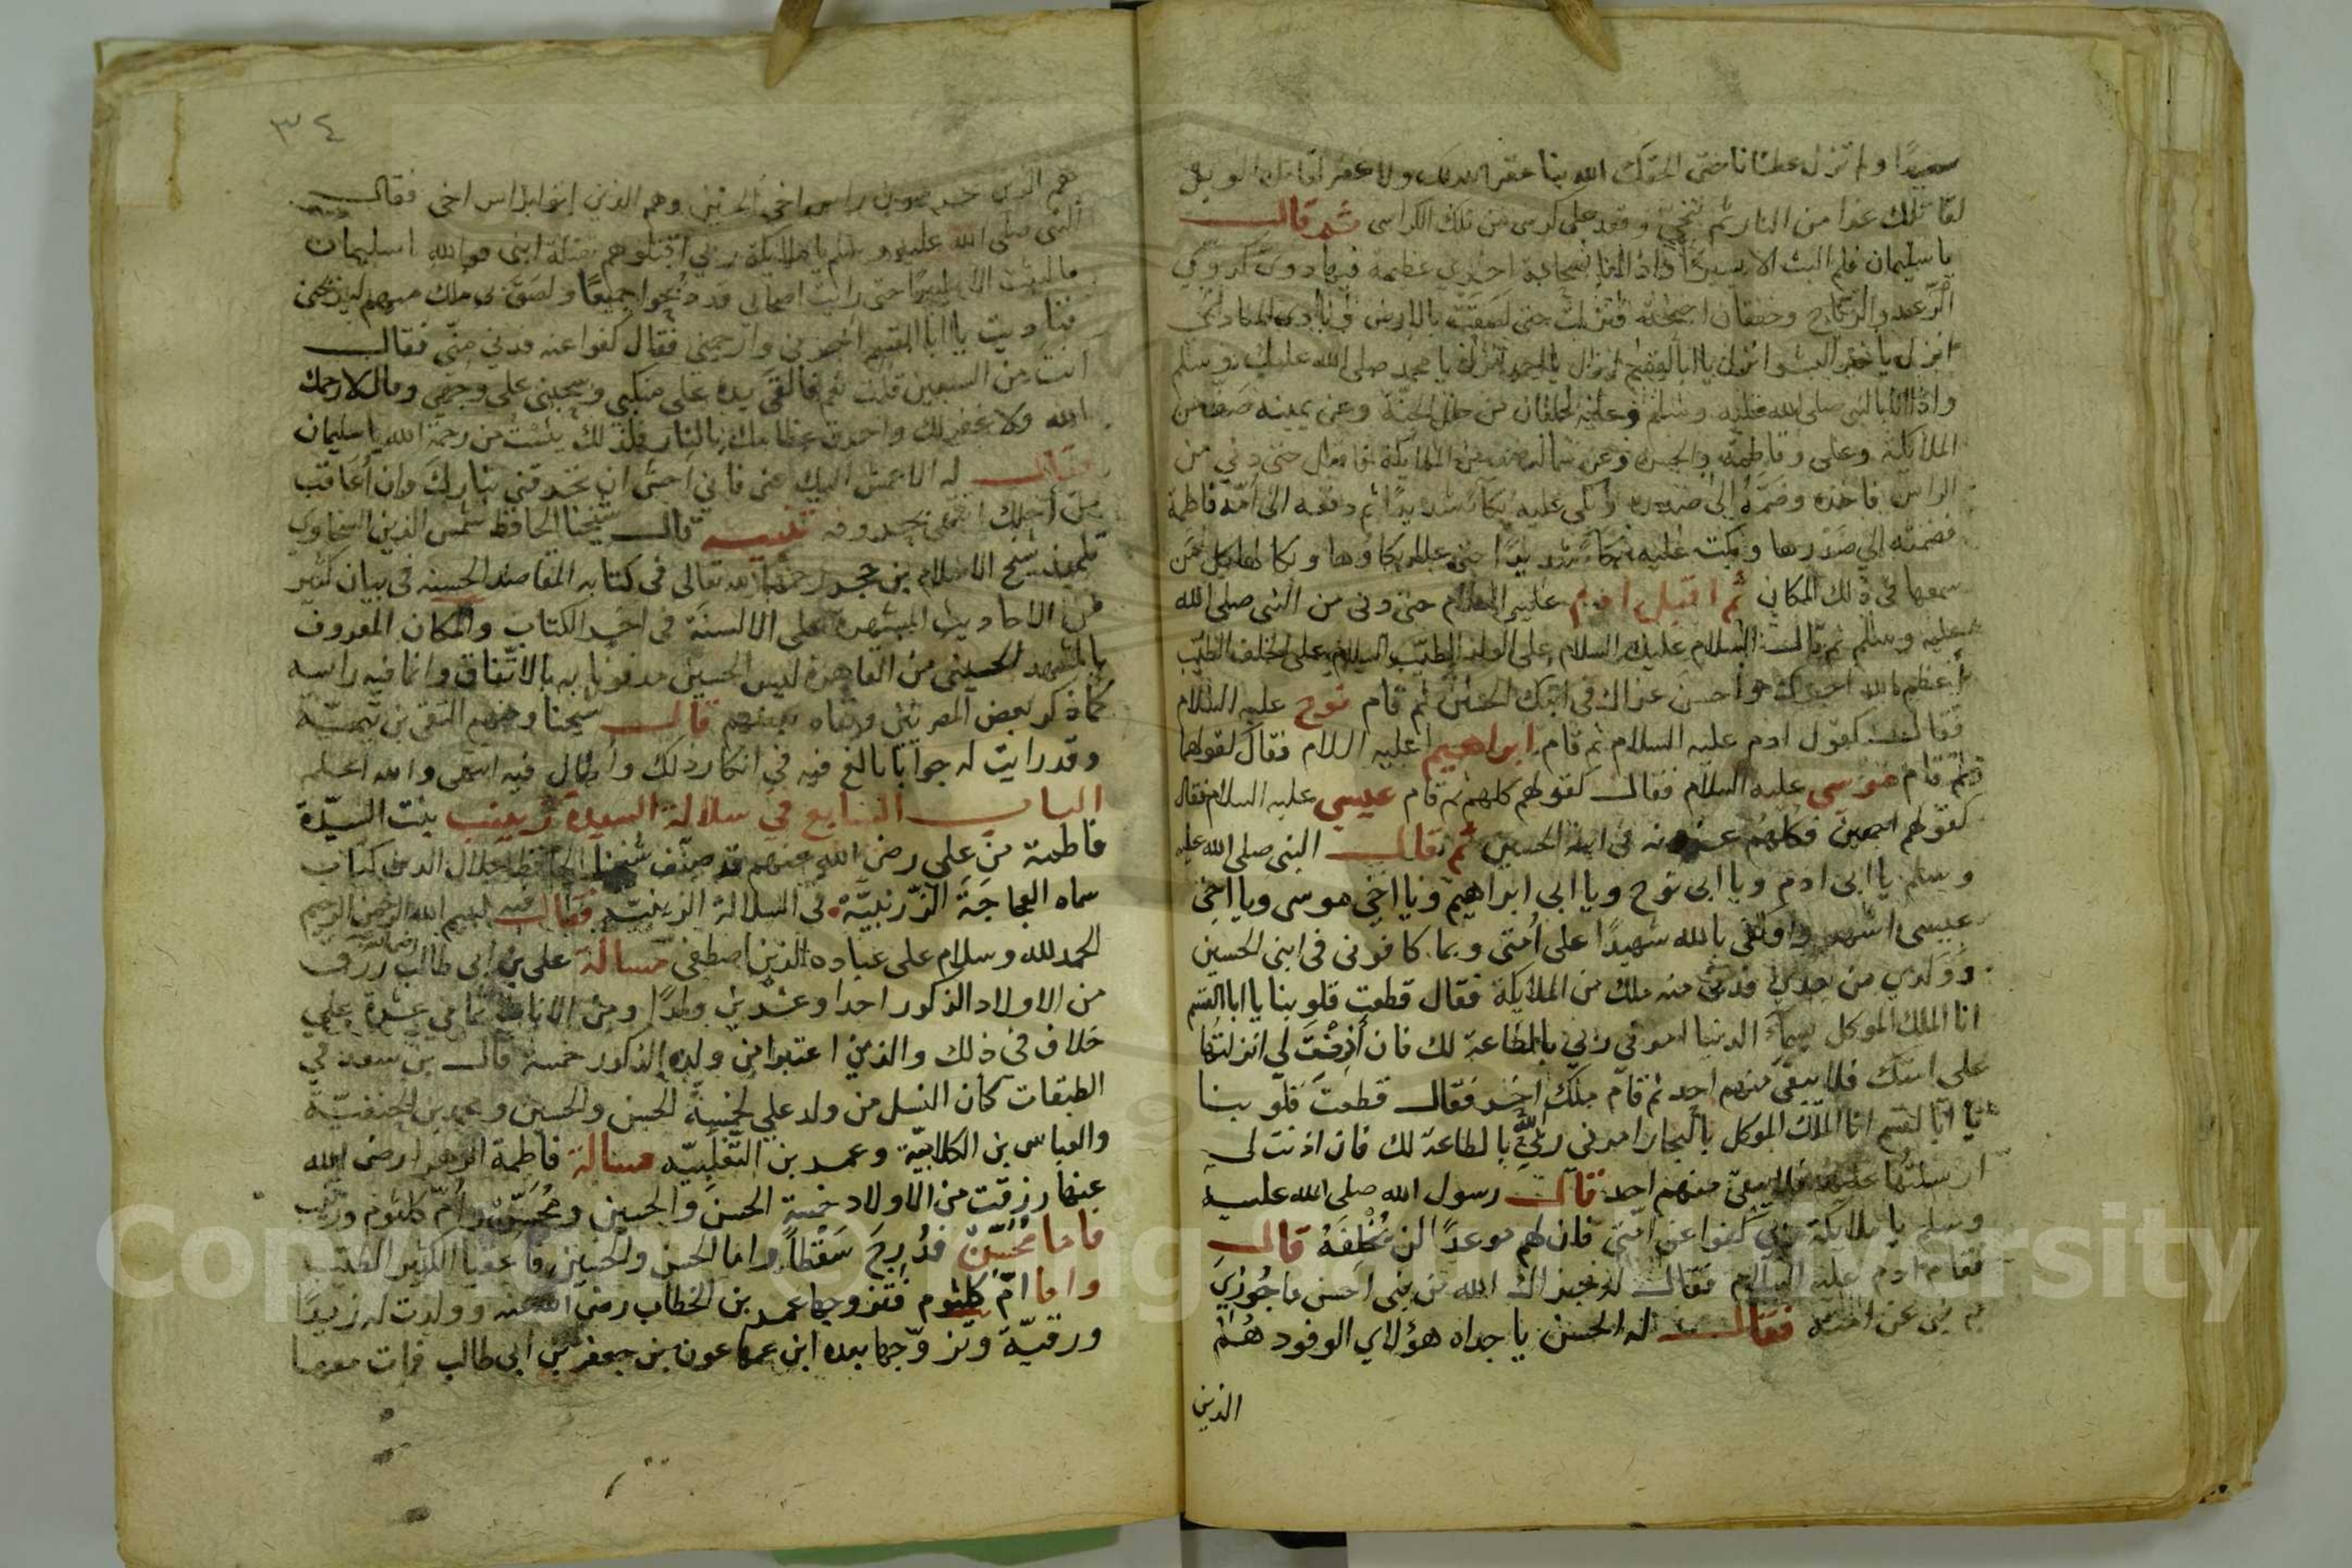 سعيدًا ولم تزل عطشانا حتى الله بنا عقر ولا غفر لقاتلك الويل
لقاتلك غدا من النار ثم تنحي وقعد على كرسي من تلك الكراسي ثم قال
يا سليمان فلم البث الا يسيرًا واذا انا بسحابة اخرى عظيمة فيها دوي كدوي
الرعد والرياح وخفقان اجنحة فنزلت حتى لصقت بالارض
انزل يا خير البشر انزل يا ابا القسم انزل يا احمد انزل يا محمد صلى الله عليك وسلم
واذا انا بالنبي صلى الله عليه وسلم وعليه حلتان من حلل الجنة وعن يمينه صف من
الملايكة وعلي وفاطمة والحسن وعن شماله صف من الملايكة حتى دنى من
الراس فاخذه وضمّه إلى صدره وبكى عليه بكآءً شديدًا ثم دفعه الى امّه فاطمة
فضمته الى صدرها وبكت عليه بكآءً شديدًا حتى علا بكاؤها وبكا لها كل من
سمعها في ذلك المكان ثم اقبل ادم عليه السلام حتى دنى من النبي صلى الله
عليه وسلم ثم قال السلام عليك السلام على الولد الطيّب السلام على الخلف الطيّب
أعظم الله اجرك واحسن عزاك في ابنك الحسين ثم قام نوح عليه السلام
فقال كقول ادم عليه السلام ثم قام ابراهيم عليه السلام فقال كقولهما
ثم قام موسى عليه السلام فقال كقولهم كلهم ثم قام عيسى عليه السلام فقال
كقولهم اجمعين فكلهم عزونه في ابنه الحسين ثم قال النبي صلى الله عليه
وسلم يا ابى ادم ويا ابى نوح ويا ابى ابراهيم ويا اخي موسى ويا اخي
عيسى اشهدوا وكفى بالله شهيدًا على أمتى وبما كافونى فى ابنى الحسين
وولدي من بعدي فدنى منه ملك من الملايكة فقال قطعت قلوبنا يا ابا القسم
انا الملك الموكل بسمآء الدنيا امرني ربي بالطاعة لك فان أذنت لي انزلتها
على امتك فلا يبقى منهم احد ثم قام ملك اخر فقال قطعت قلوبنا
يا ابا القسم انا الملك الموكل بالبحار امرنى ربّي بالطاعة لك فان اذنت لي
ارسلتها عليهم فلا يبقى منهم احد قال رسول الله صلى الله عليه
وسلم يا ملايكة ربي كفوا عن امتي فان لهم موعدًا لن نُخْلِفَهُ قال
فقام ادم عليه السلام فقال له جزاك الله من نبي احسن ما جُوزيَ
به نبي عن امته فقال له الحسن يا جداه هؤلاي الوفود هُمُ
الذين
٣٤
هم الذين يحرسون راس اخي الحسين وهم الذين اتوا براس اخي فقال
النبي صلى الله عليه وسلم يا ملايكة ربي اقتلوهم بقتلة ابنى فوالله يا سليمان
ما لبثت الا يسيرًا حتى رايت اصحابي قد ذُبحوا جميعًا ولصق بي ملك منهم ليذبحني
فناديت يا ابا القسم اجرني وارحمني فقال كفوا عنه فدنى منّي فقال
انت من السبعين قلت نعم فالقى يده على منكبي وسحبني على وجهي وقال لا رحمك
الله ولا غفر لك واحرق عظامك بالنار فلذلك يئست من رحمة الله يا سليمان
فقال له الاعمش اليك عني فاني اخشى ان تحرقني بنارك وان أعاقب
من أجلك انتهى بحروفه تنبيه قال شيخنا الحافظ شمس الدين السخاوي
تلميذ شيخ الاسلام بن حجر رحمهما الله تعالى في كتابه المقاصد الحسنه في بيان كثير
من الاحاديث المشتهرة على الالسنة في اخر الكتاب والمكان المعروف
بالمشهد الحسيني من القاهرة ليس الحسين مدفونا به بالاتّفاق وانما فيه راسه
كما ذكر بعض المصريين ونفاه بعضهم قال شيخنا ومنهم التقي بن تيميّة
وقد رايت له جوابا بالغ فيه في انكار ذلك وأطال فيه انتهى والله اعلم
الباب السابع في سلالة السيدة زينب بنت السيّدة
فاطمة من علي رضي الله عنهم قد صنّف شيخنا الحافظ جلال الدين كتاب
سماه العجاجَة الزرنبيَّة في السلالة الزينبيّه فقال فيه بسم الله الرحمن الرحيم
الحمد لله وسلام على عباده الذين اصطفى مسألة علي بن ابي طالب رضي الله عنه رزق
من الاولاد الذكور احدا وعشرين ولدًا ومن الاناث ثماني عشرة على
خلاف في ذلك والذين اعتبوا من ولده الذكور خمسة قال بن سعد في
الطبقات كان النسل من ولد علي لخمسة الحسن والحسين ومحمد بن الحنفيّة
والعباس بن الكلابيّة وعمر بن التّغلبيّه مسالة فاطمة الزهرا رضي الله
عنها رزقت من الاولاد خمسة الحسن والحسين ومُحَسِّن وأمّ كلثوم وزينب
فاما مُحَسِّنُ فدُرِجَ سَقْطاً واما الحسن والحسين فاعقبا الكثير الطيّب
واما امّ كلثوم فتزوجها عمر بن الخطاب رضي الله عنه وولدت له زيدًا
ورقيّة وتزوّجها بعده ابن عمها عون بن جعفر بن ابي طالب فمات معها
Copyright © King Saud University